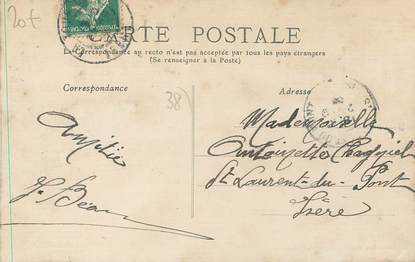 20f
CARTE POSTALE
La Correspondance au recto n'est pas acceptée par tous les pays étrangers
(Se renseigner à la Poste)
Correspondance
38
Amitié
Adresse
Mademoiselle
Antoinette
St Laurent-du-Pont
Isère